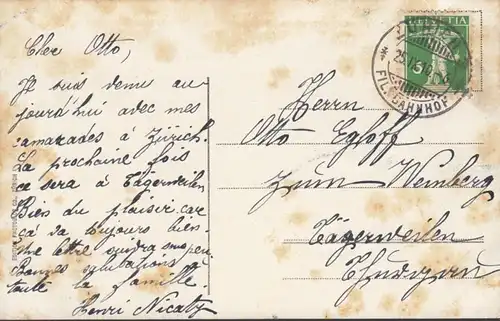 Cher Otto,
Je suis venu au
jourd'hui avec mes
camarades à Zürich.
La prochaine fois
ce sera à Tägerweilen
Bien du plaisir car
ça va toujours bien.
Une lettre
Bonnes salutations à
toute la famille.
Henri
HELVETIA
5
FIL. BAHNHOF
Herrn
Otto Egloff
zum Weinberg
Tägerweilen
Thurgau